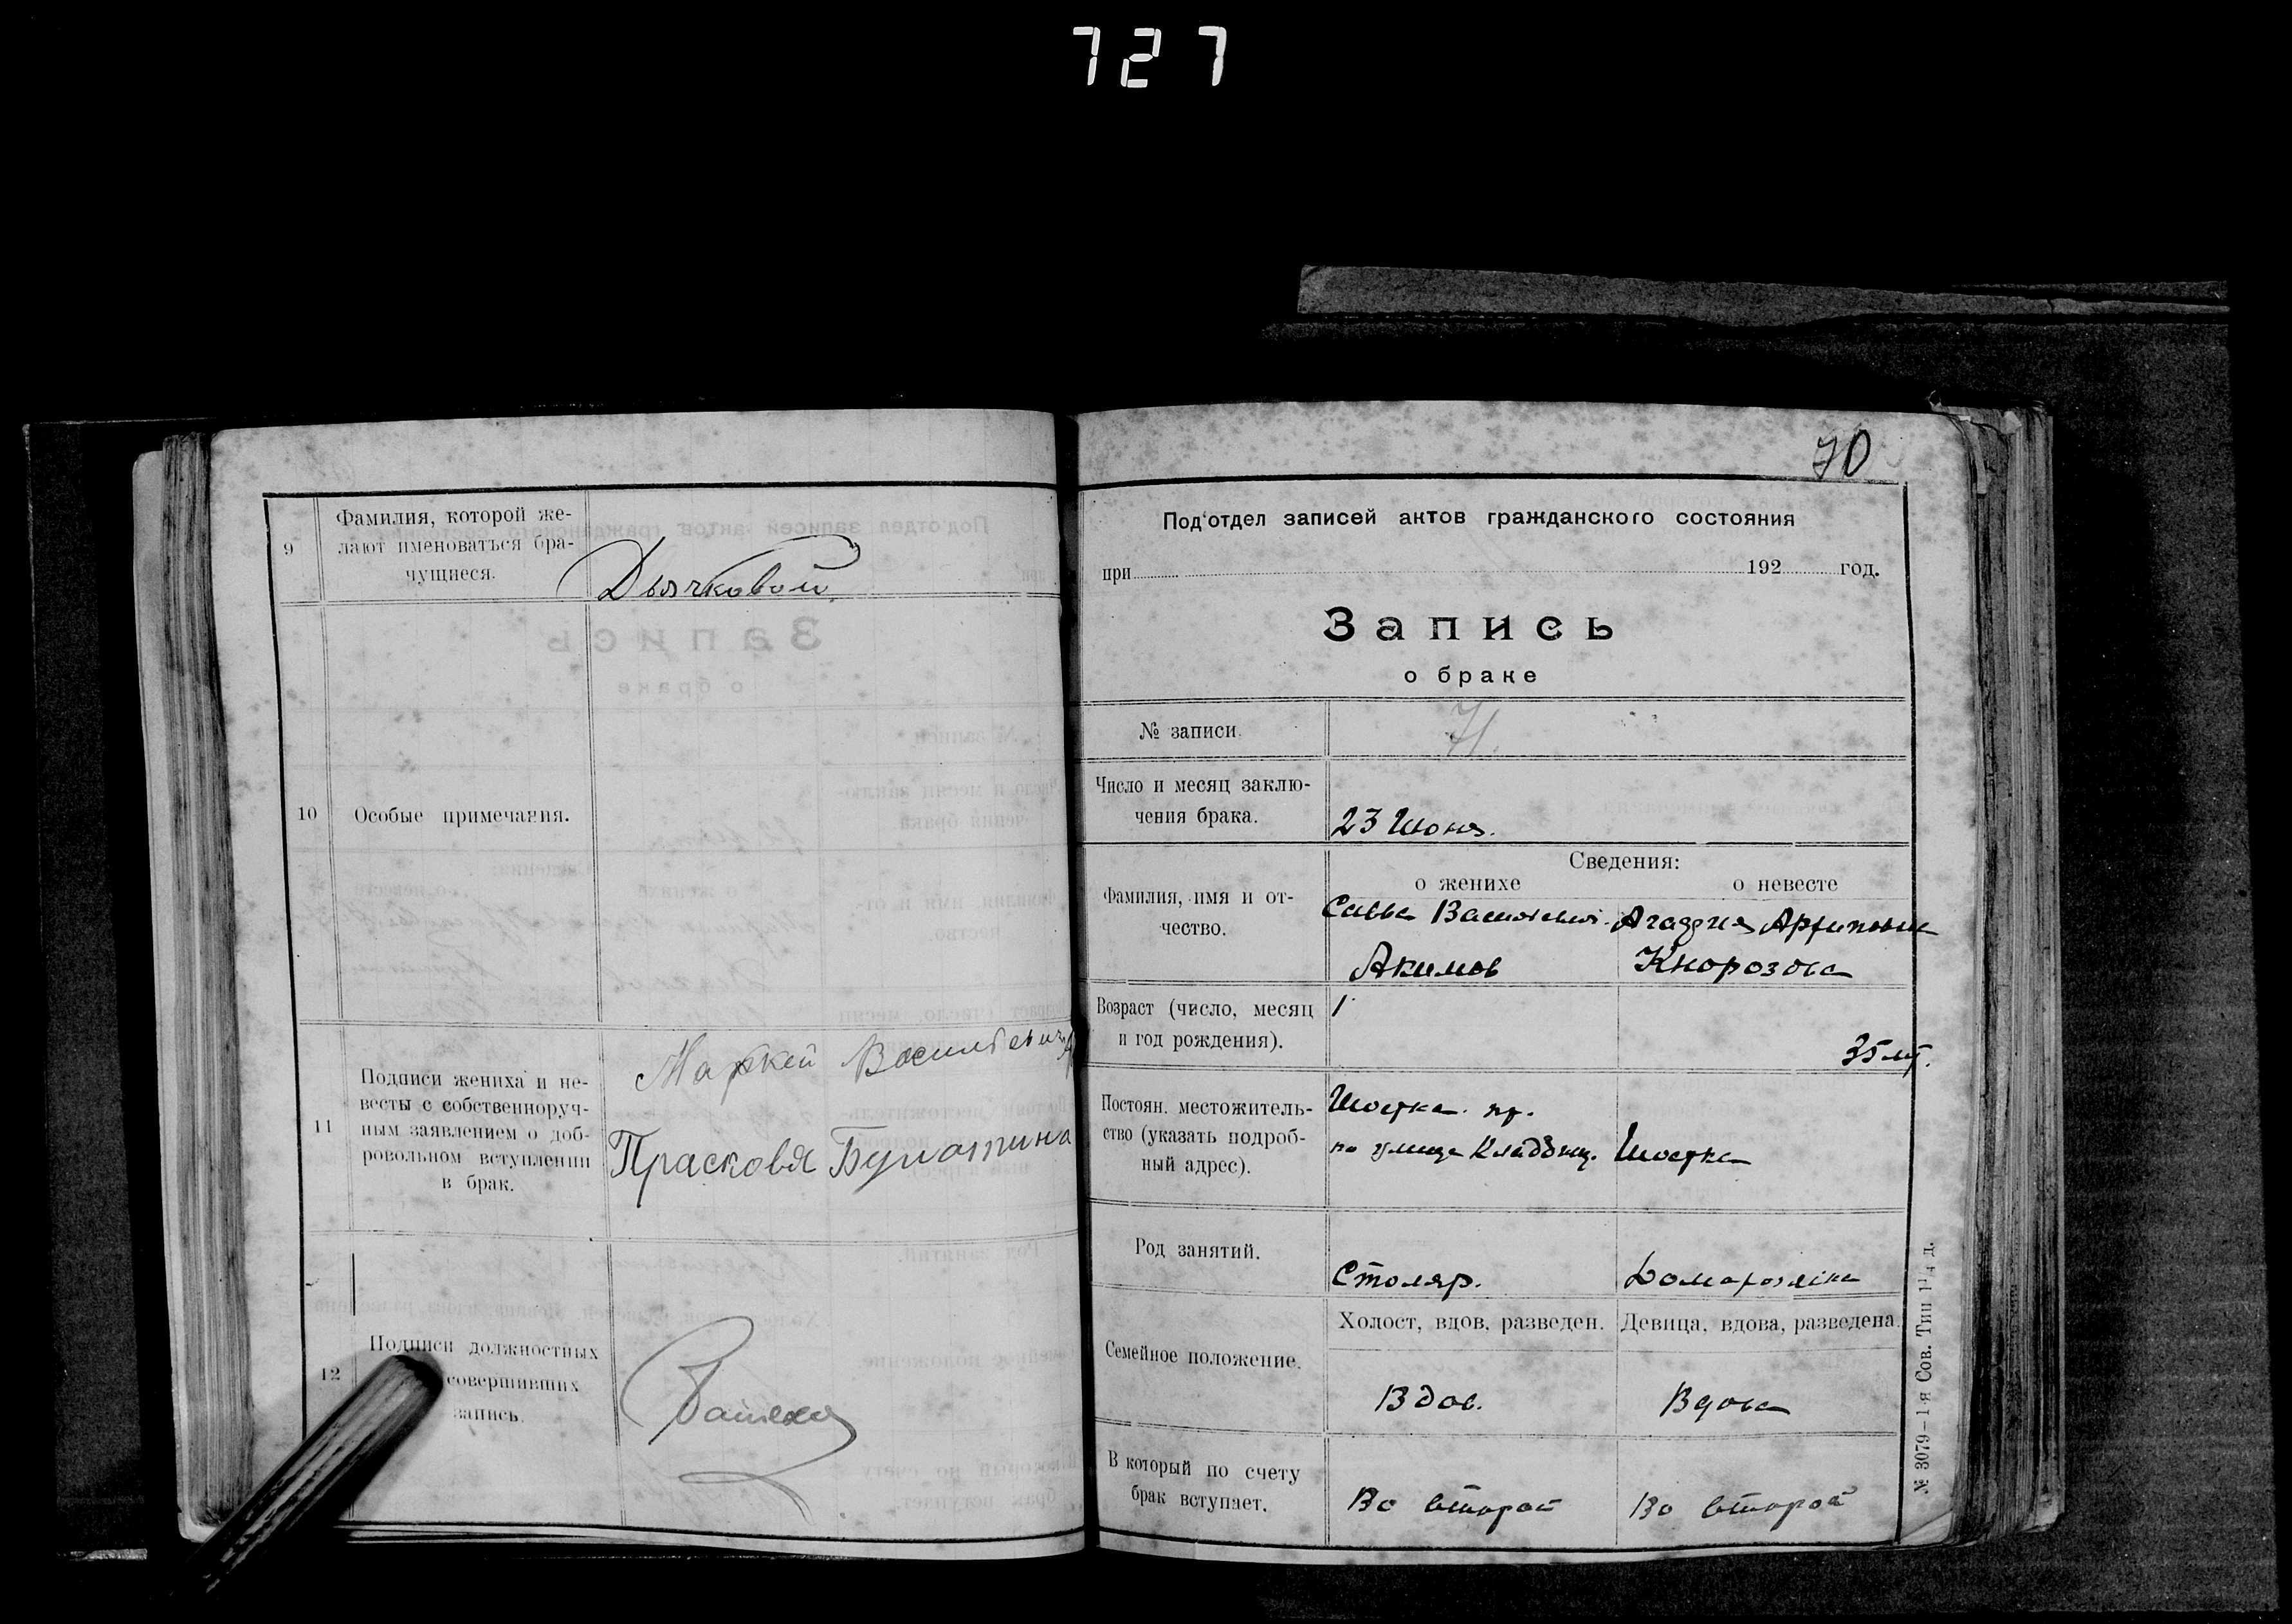 727
9
Фамилия, которой же-
лают именоваться бра-
чущиеся.
Дьячковой
10
Особые примечания.
11
Подписи жениха и не-
весты с собственноруч-
ным заявлением о доб-
ровольном вступлении
в брак.
Маркей Васильевич
Прасковя
12
Подписи должностных
совершивших
запись.
70
Под'отдел записей актов гражданского состояния
при 192 год.
Запись
о браке
№ записи.
71.
Число и месяц заклю-
чения брака.
23 Июня.
Сведения:
о женихе о невесте
Фамилия, имя и от-
чество.
Савва
Акимов Кнорозова
Возраст (число, месяц
и год рождения).
1
35 лет.
Постоян. местожитель-
ство (указать подроб-
ный адрес).
Шостка
по улице Шостка
Род занятий.
Столяр.
Семейное положение.
Холост, вдов, разведен. Девица, вдова, разведена.
Вдов. Вдова
В который по счету
брак вступает.
Во второй Во второй
№ 3079—1-я Сов. Тип